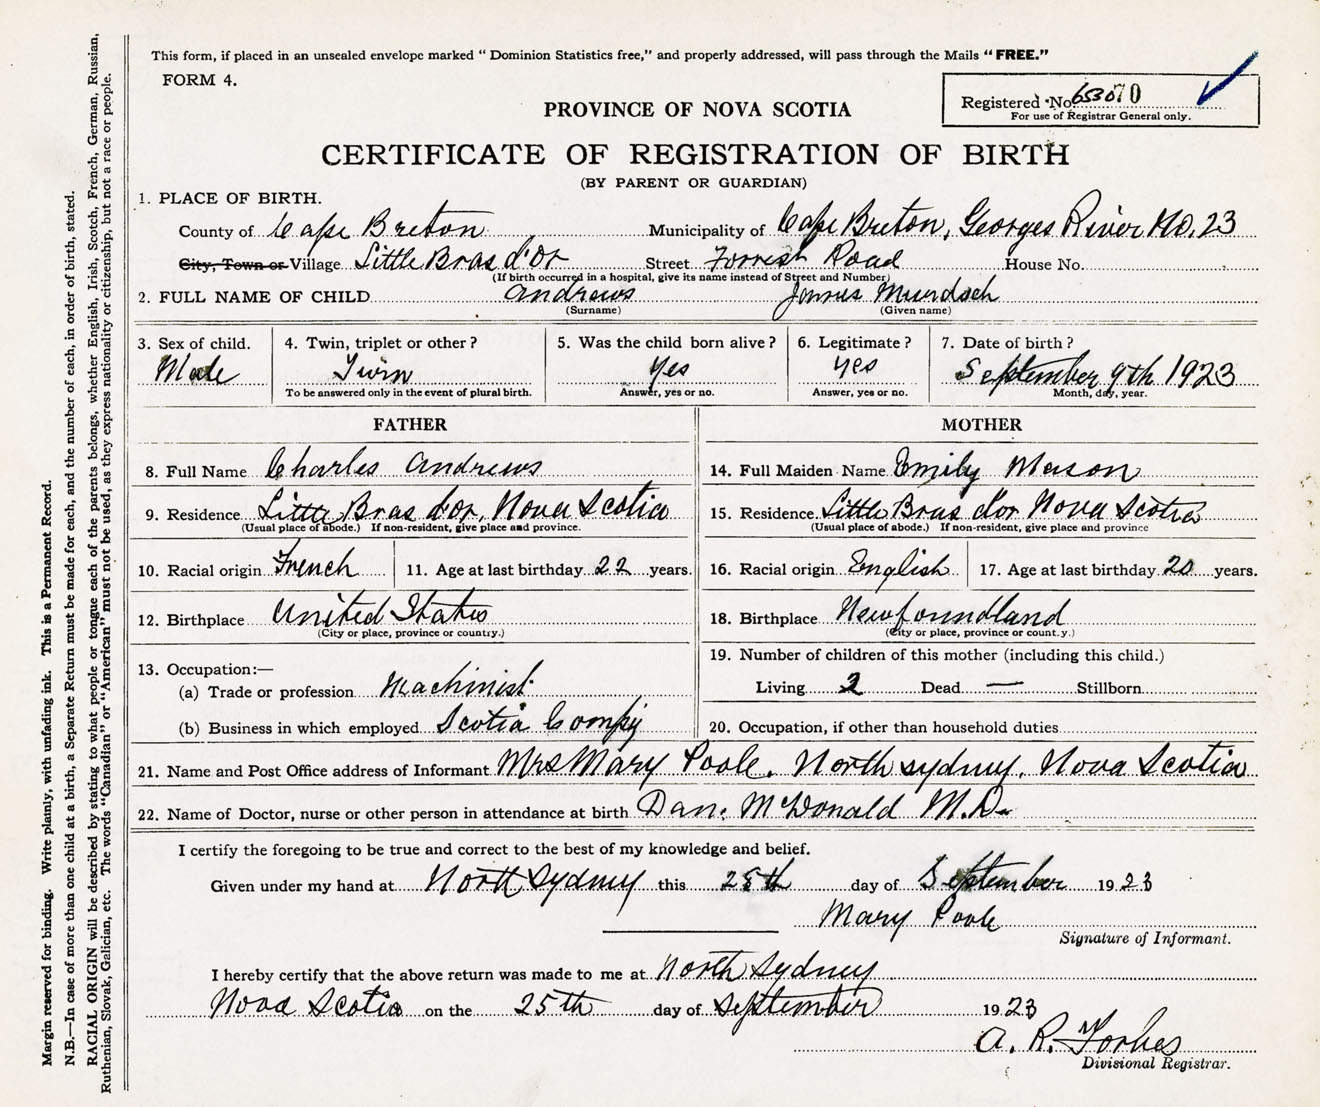 This form, if placed in an unsealed envelope marked “ Dominion Statistics free,” and properly addressed, will pass through the Mails “ FREE.”
FORM 4.
Registered No. 65370
For use of Registrar General only.
PROVINCE OF NOVA SCOTIA
CERTIFICATE OF REGISTRATION OF BIRTH
(BY PARENT OR GUARDIAN)
1. PLACE OF BIRTH.
County of Cape Breton Municipality of Cape Breton, Georges River No. 23
City, Town or Village Little Bras d'Or Street Forrest Road House No.
(If birth occurred in a hospital, give its name instead of Street and Number)
2. FULL NAME OF CHILD Andrews James Murdoch
(Surname) (Given name)
3. Sex of child. 4. Twin, triplet or other ? 5. Was the child born alive ? 6. Legitimate ? 7. Date of birth ?
Male Twin Yes Yes September 9th 1923
To be answered only in the event of plural birth. Answer, yes or no. Answer, yes or no. Month, day, year.
FATHER MOTHER
8. Full Name Charles Andrews 14. Full Maiden Name Emily Mason
9. Residence Little Bras d'or, Nova Scotia 15. Residence Little Bras d'or Nova Scotia
(Usual place of abode.) If non-resident, give place and province. (Usual place of abode.) If non-resident, give place and province
10. Racial origin French 11. Age at last birthday 22 years. 16. Racial origin English 17. Age at last birthday 20 years.
12. Birthplace United States 18. Birthplace Newfoundland
(City or place, province or country.) (City or place, province or count.y.)
13. Occupation:— 19. Number of children of this mother (including this child.)
(a) Trade or profession Machinist Living 2 Dead — Stillborn
(b) Business in which employed Scotia Compy 20. Occupation, if other than household duties
21. Name and Post Office address of Informant Mrs Mary Poole, North Sydney, Nova Scotia
22. Name of Doctor, nurse or other person in attendance at birth Dan. McDonald M.D.
I certify the foregoing to be true and correct to the best of my knowledge and belief.
Given under my hand at North Sydney this 25th day of September 1923
Mary Poole
Signature of Informant.
I hereby certify that the above return was made to me at North Sydney
Nova Scotia on the 25th day of September 1923
A. R. Forbes
Divisional Registrar.
Margin reserved for binding. Write plainly, with unfading ink. This is a Permanent Record.
N.B.—In case of more than one child at a birth, a Separate Return must be made for each, and the number of each, in order of birth, stated.
RACIAL ORIGIN will be described by stating to what people or tongue each of the parents belongs, whether English, Irish, Scotch, French, German, Russian,
Ruthenian, Slovak, Galician, etc. The words “Canadian” or “American” must not be used, as they express nationality or citizenship, but not a race or people.